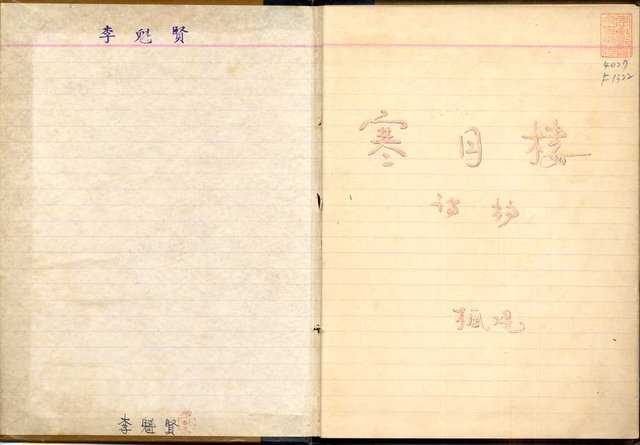 李魁賢
李魁賢
4027
F1322
寒月樓
詩抄
楓堤